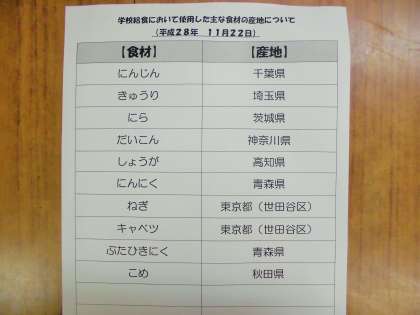 学校給食において使用した主な食材の産地について
（平成２８年　１１月２２日）
【食材】 【産地】
にんじん 千葉県
きゅうり 埼玉県
にら 茨城県
だいこん 神奈川県
しょうが 高知県
にんにく 青森県
ねぎ 東京都（世田谷区）
キャベツ 東京都（世田谷区）
ぶたひきにく 青森県
こめ 秋田県